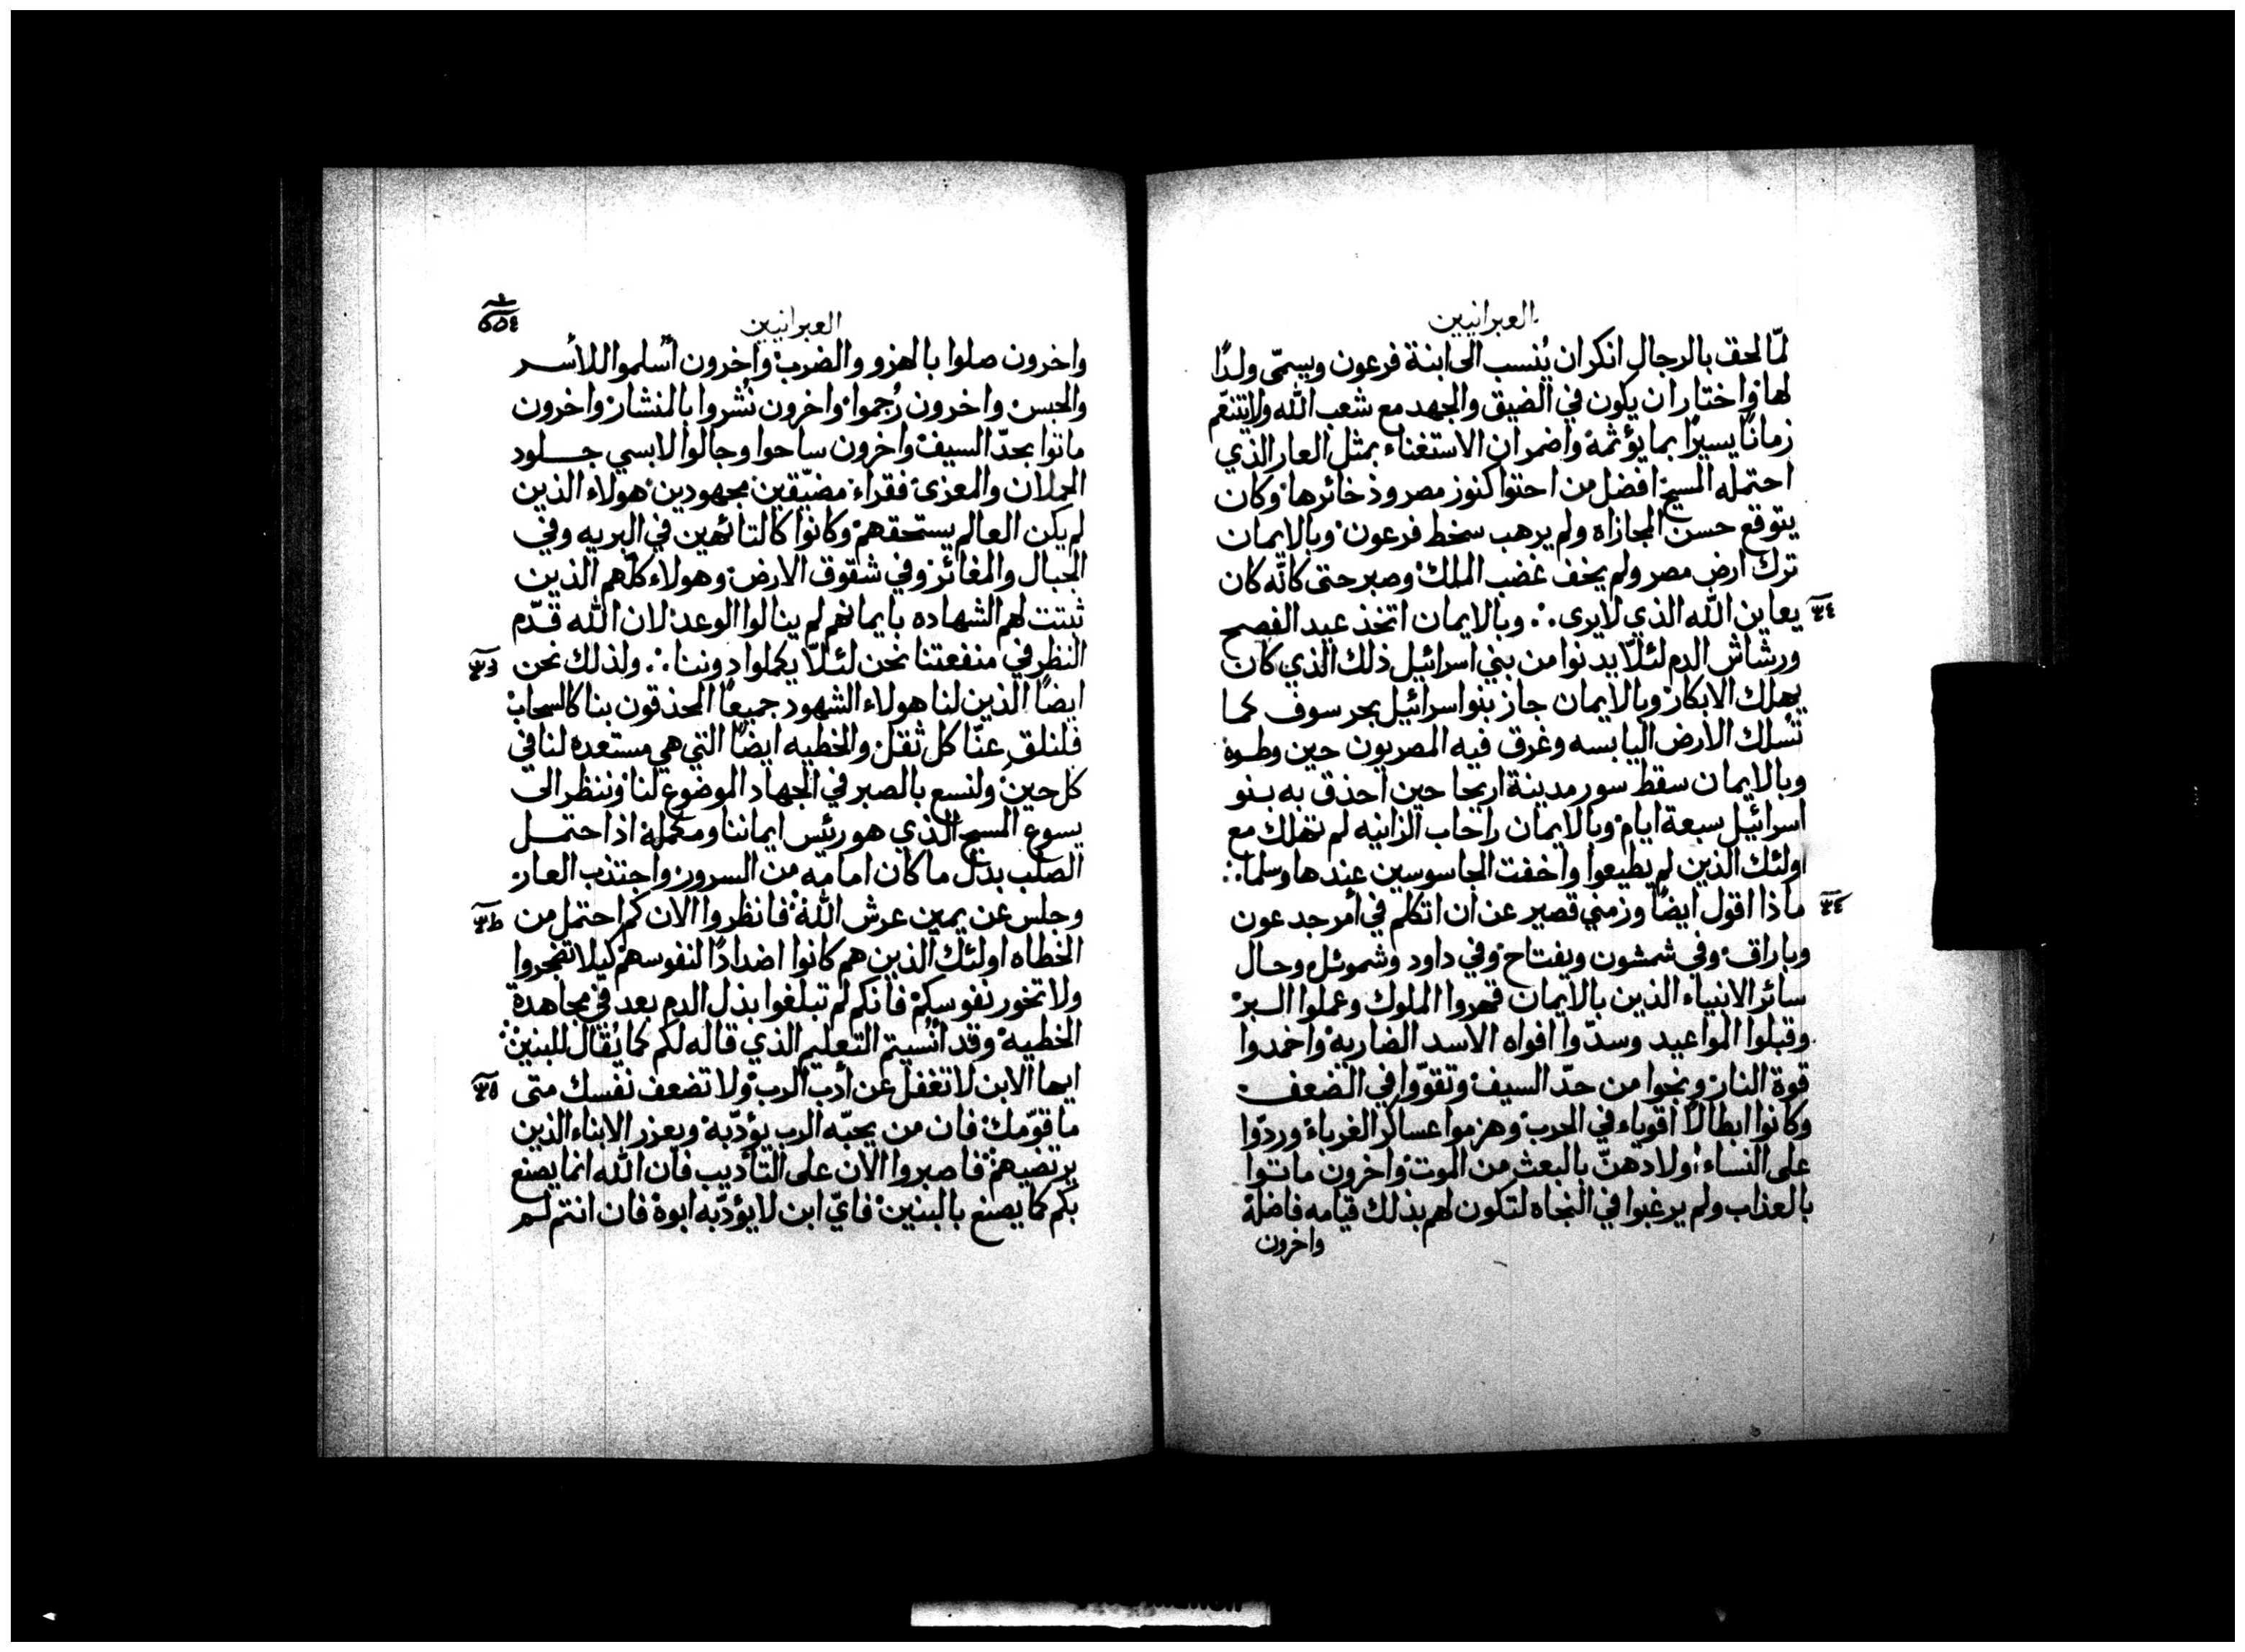 العبرانيين
لمّا لحق بالرجال انكر ان يُنسب الى ابنة فرعون ويسمّى ولدًا
لها واختار ان يكون في الضيق والجهد مع شعب الله ولا يتنعّم
زمانًا يسيرًا بما يؤثمه واضمر ان الاستغناء بمثل العار الذي
احتمله المسيح افضل من احتوا كنوز مصر وذخائرها وكان
يتوقع حسن المجازاه ولم يرهب سخط فرعون وبالايمان
ترك ارض مصر ولم يخف غضب الملك وصبر حتى كانّه كان
يعاين الله الذي لا يرى ∴ وبالايمان اتخذ عيد الفصح
ورشاش الدم لئلّا يدنوا من بني اسرائيل ذلك الذي كان
يهلك الابكار وبالايمان جاز بنو اسرائيل بحر سوف كما
تُسلك الارض اليابسه وغرق فيه المصريون حين وطوه
وبالايمان سقط سور مدينة اريحا حين احذق به بنو
اسرائيل سبعة ايام وبالايمان راحاب الزانيه لم تهلك مع
اولئك الذين لم يطيعوا واخفت الجاسوسين عندها وسلما ∴
ماذا اقول ايضًا وزمني قصير عن ان اتكلم في أمر جدعون
وباراق وفي شمشون ويفتاح وفي داود وشموئل وحال
سائر الانبياء الذين بالايمان قهروا الملوك وعملوا البر
وقبلوا المواعيد وسدّوا افواه الاسد الضاريه واخمدوا
قوة النار ونجوا من حدّ السيف وتقوّوا في الضعف
وكانوا ابطالًا اقوياء في الحرب وهزموا عساكر الغرباء وردّوا
على النساء اولادهنّ بالبعث من الموت واخرون ماتوا
بالعذاب ولم يرغبوا في النجاه لتكون لهم بذلك قيامه فاضلة
واخرون
العبرانيين
واخرون صلوا بالهزو والضرب واخرون أُسلموا للأسر
والحبس واخرون رُجموا واخرون نُشروا بالمنشار واخرون
ماتوا بحدّ السيف واخرون ساحوا وجالوا لابسي جلود
الحملان والمعزى فقراء مضيّقين مجهودين هولاء الذين
لم يكن العالم يستحقهم وكانوا كالتائهين في البريه وفي
الجبال والمغائر وفي شقوق الارض وهولاء كلّهم الذين
ثبتت لهم الشهاده بايمانهم لم ينالوا الوعد لان الله قدّم
النظر في منفعتنا نحن لئلّا يكملوا دوننا ∴ ولذلك نحن
ايضًا الذين لنا هولاء الشهود جميعًا المحذقون بنا كالسحاب
فلنلق عنّا كل ثقل والخطيه ايضًا التي هي مستعده لنا في
كل حين ولنسع بالصبر في الجهاد الموضوع لنا وننظر الى
يسوع المسيح الذي هو رئس ايماننا ومكمله اذ احتمل
الصلب بدل ما كان امامه من السرور واجتذب العار
وجلس عن يمين عرش الله فانظروا الان كم احتمل من
الخطاه اولئك الذين هم كانوا اضدادًا لنفوسهم كيلا تضجروا
ولا تخور نفوسكم فانكم لم تبلغوا بذل الدم بعد في مجاهدة
الخطيه وقد انُسيتم التعليم الذي قاله لكم كما يُقال للبنين
ايها الابن لا تغفل عن أدب الرب ولا تضعف نفسك متى
ما قوّمك فان من يحبّه الرب يؤدّبه ويعزر الابناء الذين
يرتضيهم فاصبروا الان على التأديب فان الله انما يصنع
بكم كما يصنع بالبنين فايّ ابن لا يؤدّبه ابوه فان انتم لم